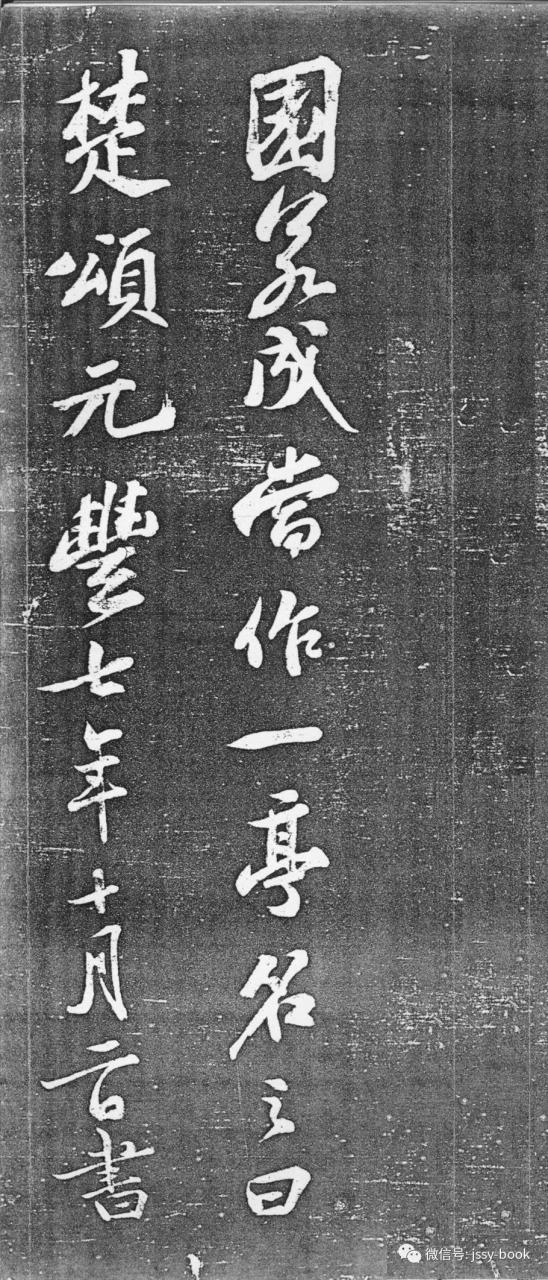 園若成當作一亭名之曰
楚頌元豐七年十月二日書
微信号: jssy-book